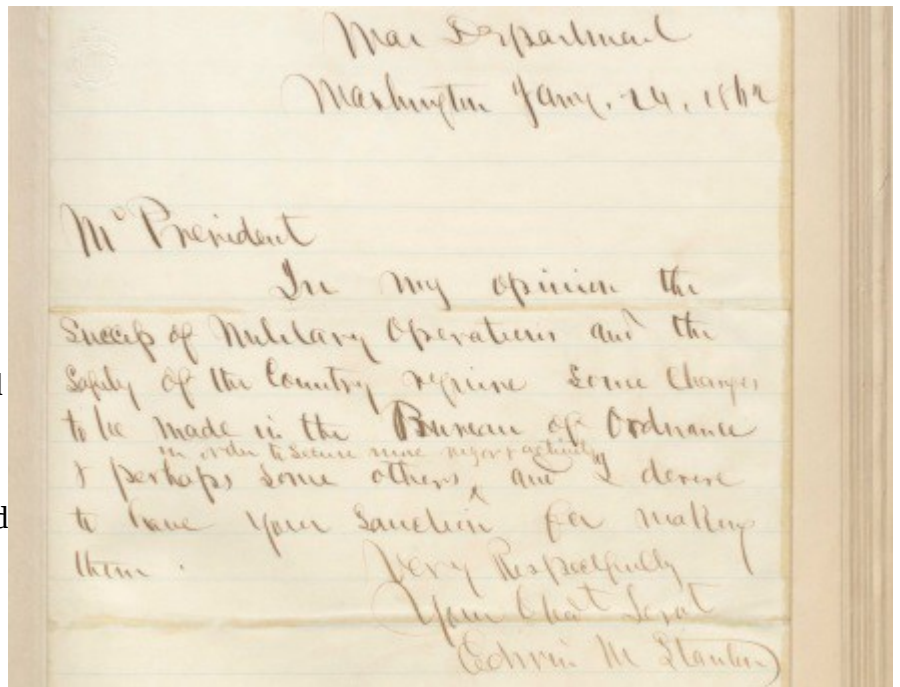 War Department
Washington Jany. 24, 1862
Mr President
In my opinion the
Success of Military Operations and the
Safety of the Country require some Changes
to be made in the Bureau of Ordnance
in order to secure more vigor & activity
& perhaps some others ^ and I desire
to have your Sanction for making
them.
Very Respectfully
Your Obdt Servt
Edwin M Stanton
d